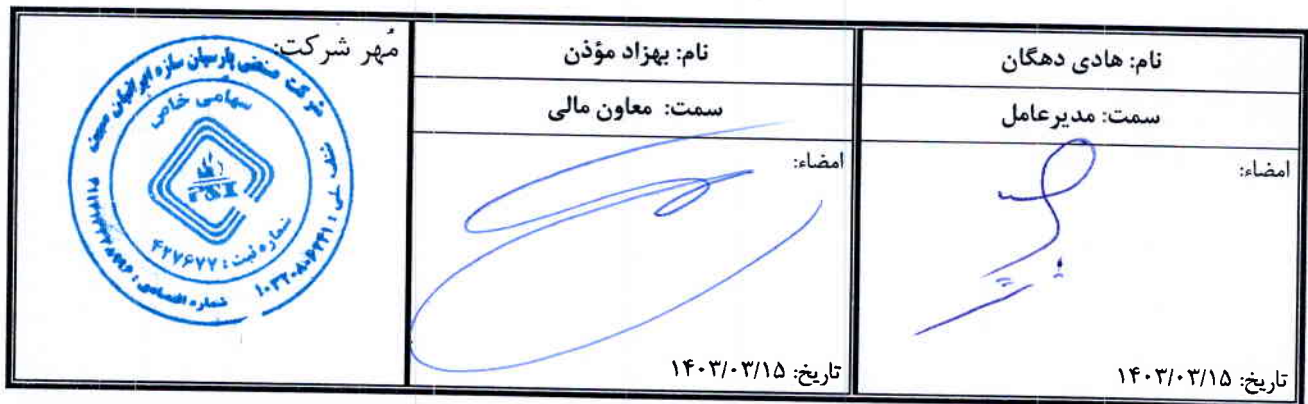 نام: هادی دهگان
سمت: مدیرعامل
امضاء:
تاریخ: ۱۴۰۳/۰۳/۱۵
نام: بهزاد مؤذن
سمت: معاون مالی
امضاء:
تاریخ: ۱۴۰۳/۰۳/۱۵
مُهر شرکت:
شرکت صنعتی پارسیان سازه ایرانیان
سهامی خاص
شماره ثبت: ۴۲۷۶۷۷
شماره اقتصادی: